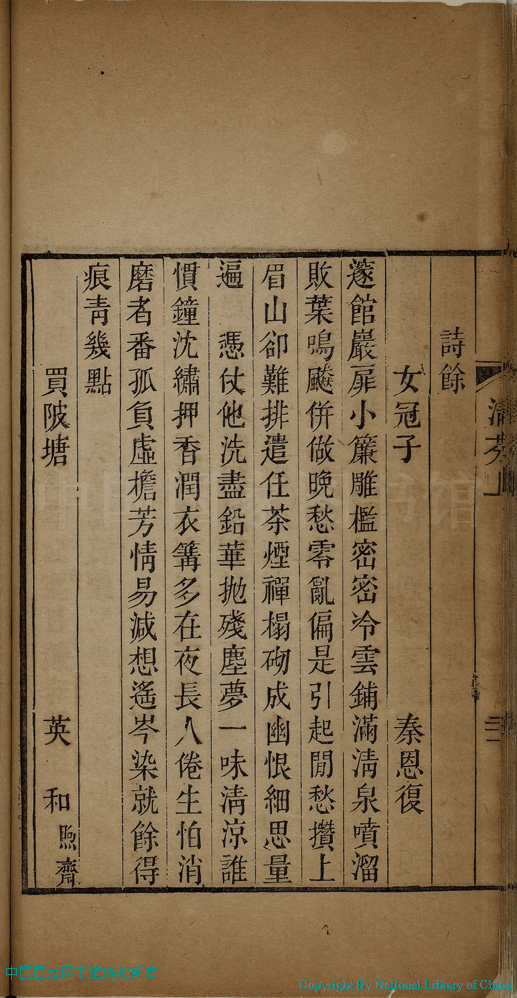 詩餘
女冠子 秦恩復
邃館巖扉小簾雕檻密密冷雲鋪滿清泉噴溜
敗葉鳴飇併做晚愁零亂偏是引起閒愁攢上
眉山卻難排遣任茶煙禪榻砌成幽恨細思量
遍 憑仗他洗盡鉛華拋殘塵夢一味清涼誰
慣鐘沈繡押香潤衣篝多在夜長人倦生怕消
磨者番孤負虛檐芳情易減想遙岑染就餘得
痕青幾點
買陂塘 英和煦齋
Copyright By National Library of China